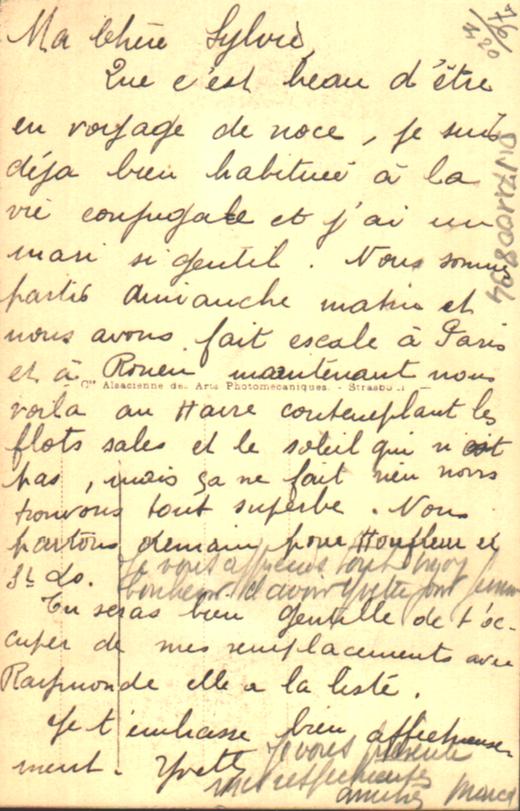 Ma Chère Sylvie,
Que c'est beau d'être
en voyage de noce, je suis
déja bien habituée à la
vie conjugale et j'ai un
mari si gentil. Nous sommes
partis dimanche matin et
nous avons fait escale à Paris
et à Rouen maintenant nous
Cie Alsacienne des Arts Photomécaniques. - Strasbourg
voila au Havre contemplant les
flots sales et le soleil qui n'est
pas, mais ça ne fait rien nous
trouvons tout superbe. Nous
partons demain pour Honfleur et
St Lo.
bonheur d'avoir Yvette pour femme
Tu seras bien gentille de t'oc-
cuper de mes remplacements avec
Raymonde elle a la liste.
Je t'embrasse bien affectueuse-
ment. Yvette
Je vous présente
mes respectueuses
amitiés Marcel